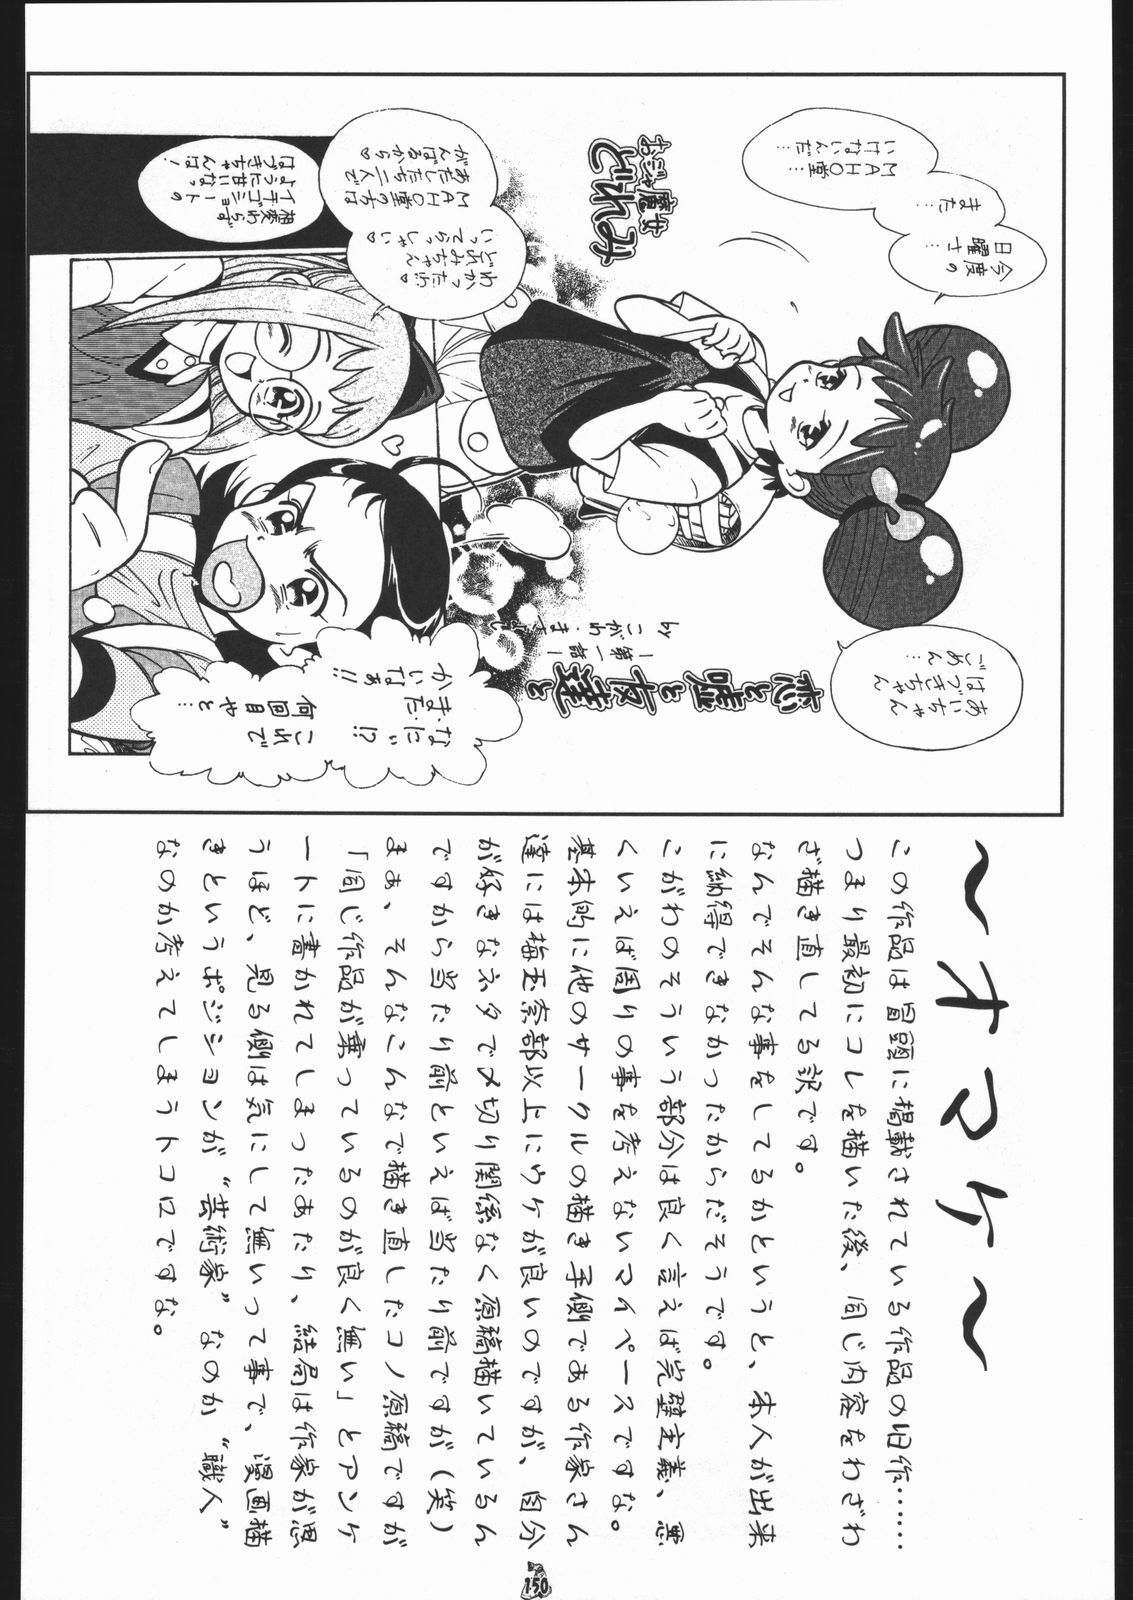 今度の
日曜さ…
また…
MAHO堂…
いけないんだ…
あいちゃん
はづきちゃん
ごめん…
おジャ魔女
どれみ
恋と嘘と友達と
ー第一話ー
by こがわ・
わかったわ♡
どれみちゃん
いってらっしゃい♡
MAHO堂の方は
あたしたち二人で
がんばるから♡
なに!?
また
かいなぁ!!
これで
何回目やと…
相変わらず
イチゴショートの
ように甘いなっ
はづきちゃんは!
〜オマケ〜
この作品は冒頭に掲載されている作品の旧作……
つまり最初にコレを描いた後、同じ内容をわざわ
ざ描き直してる訳です。
なんでそんな事をしてるかというと、本人が出来
に納得できなかったからだそうです。
こがわのそういう部分は良く言えば完璧主義、悪
くいえば周りの事を考えないマイペースですな。
基本的に他のサークルの描き手側である作家さん
達には梅玉奈部以上にウケが良いのですが、自分
が好きなネタで〆切り関係なく原稿描いているん
ですから当たり前といえば当たり前ですが(笑)
まぁ、そんなこんなで描き直したコノ原稿ですが
「同じ作品が乗っているのが良く無い」とアンケ
ートに書かれてしまったあたり、結局は作家が思
うほど、見る側は気にして無いって事で、漫画描
きというポジションが“芸術家”なのか“職人”
なのか考えてしまうトコロですな。
150